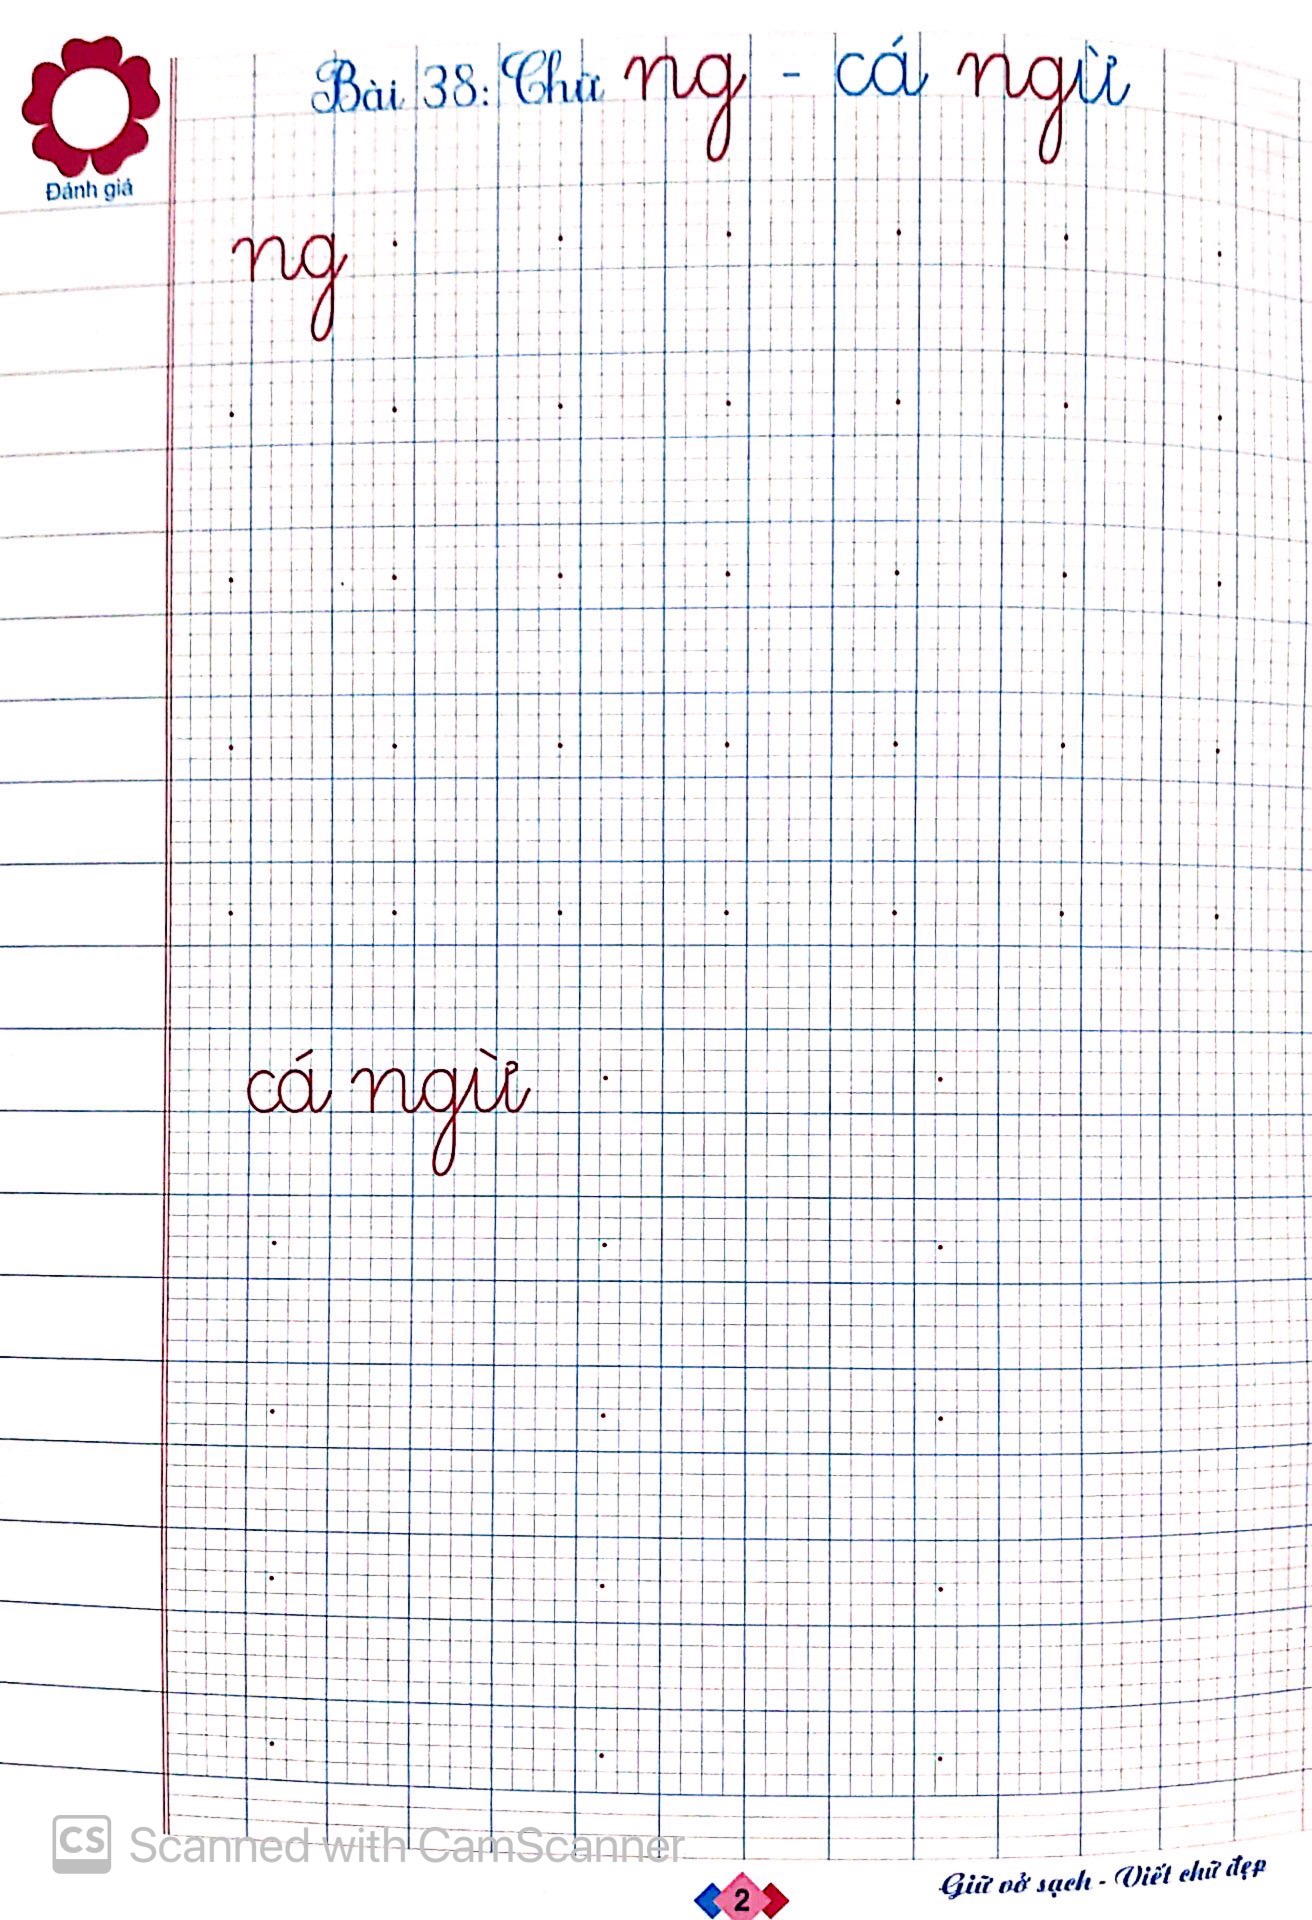 Bài 38: Chữ ng - cá ngừ
Đánh giá
ng
cá ngừ
CS Scanned with CamScanner
2
Giữ vở sạch - Viết chữ đẹp